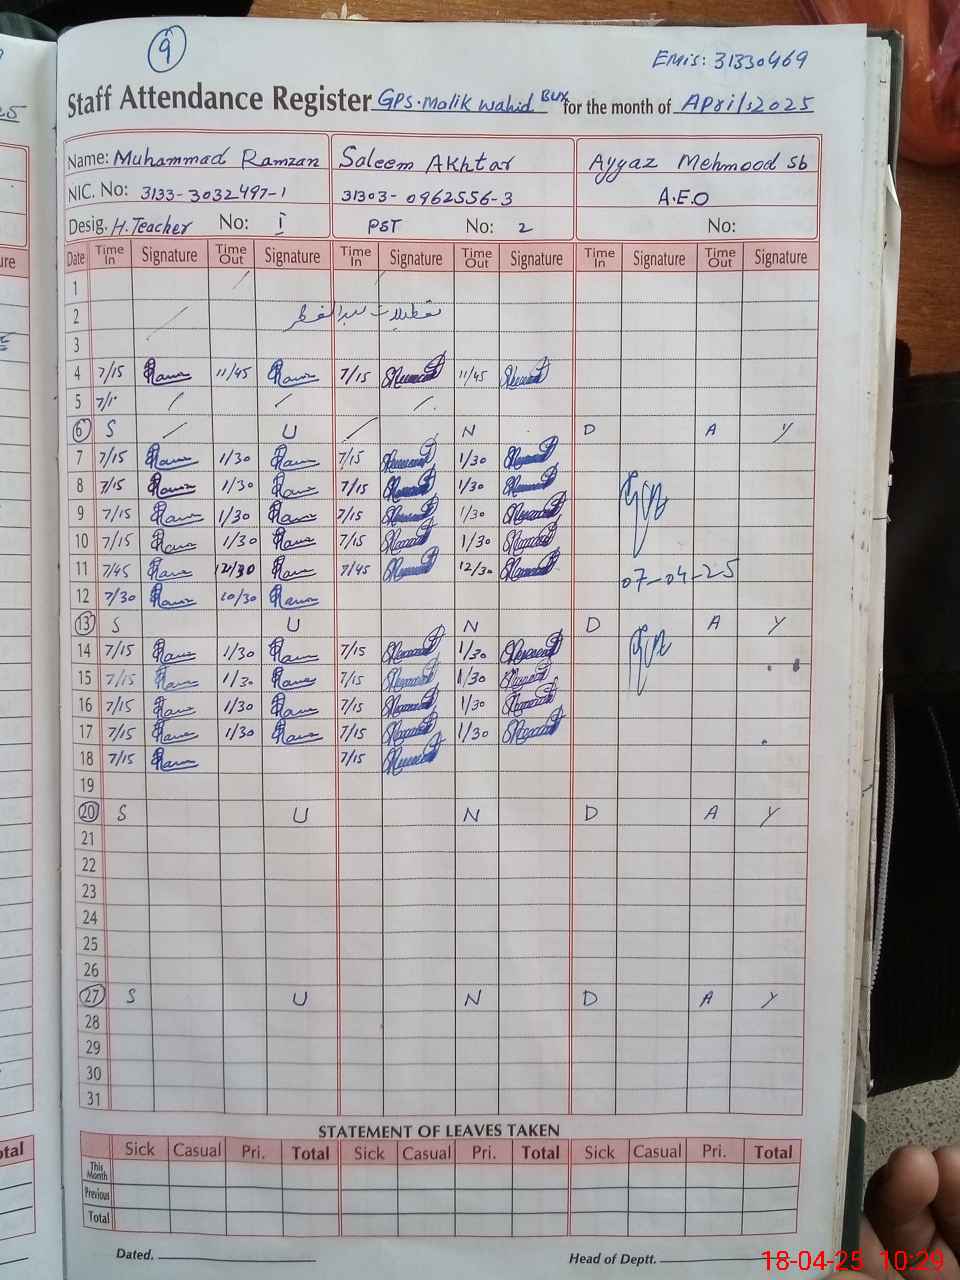 9
EMis: 31330469
Staff Attendance Register GPS. Malik Wahid Bux for the month of April, 2025
Name: Muhammad Ramzan Saleem Akhtar Ayyaz Mehmood sb
NIC. No: 3133-3032497-1 31303-0962556-3 A.E.O
Desig. H. Teacher No: I PST No: 2 No:
Date Time In Signature Time Out Signature Time In Signature Time Out Signature Time In Signature Time Out Signature
1
2 تعطیلات عید الفطر
3
4 7/15 11/45 7/15 11/45
5 7/1
6 S U N D A Y
7 7/15 1/30 7/15 1/30
8 7/15 1/30 7/15 1/30
9 7/15 1/30 7/15 1/30
10 7/15 1/30 7/15 1/30
11 7/45 12/30 7/45 12/30 07-04-25
12 7/30 10/30
13 S U N D A Y
14 7/15 1/30 7/15 1/30
15 7/15 1/30 7/15 1/30
16 7/15 1/30 7/15 1/30
17 7/15 1/30 7/15 1/30
18 7/15 7/15
19
20 S U N D A Y
21
22
23
24
25
26
27 S U N D A Y
28
29
30
31
STATEMENT OF LEAVES TAKEN
Sick Casual Pri. Total Sick Casual Pri. Total Sick Casual Pri. Total
This Month
Previous
Total
Dated. Head of Deptt.
18-04-25 10:29